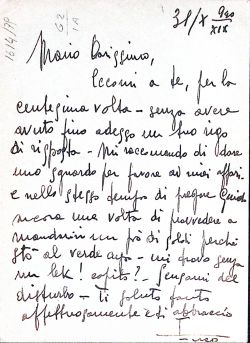 1614/PP
62
1A
31/X 940
XIX
Mario Carissimo,
Eccomi a te, per la
centesima volta - senza avere
avuto fino adesso un tuo rigo
di risposta - Mi raccomando di dare
uno sguardo per favore ai miei affari
e nello stesso tempo di pregare Guido
ancora una volta di provvedere a
mandarmi un pò di soldi perché
sto al verde - mi trovo senza
un lek! capito? - Scusami del
disturbo - Ti saluto tanto
affettuosamente e ti abbraccio